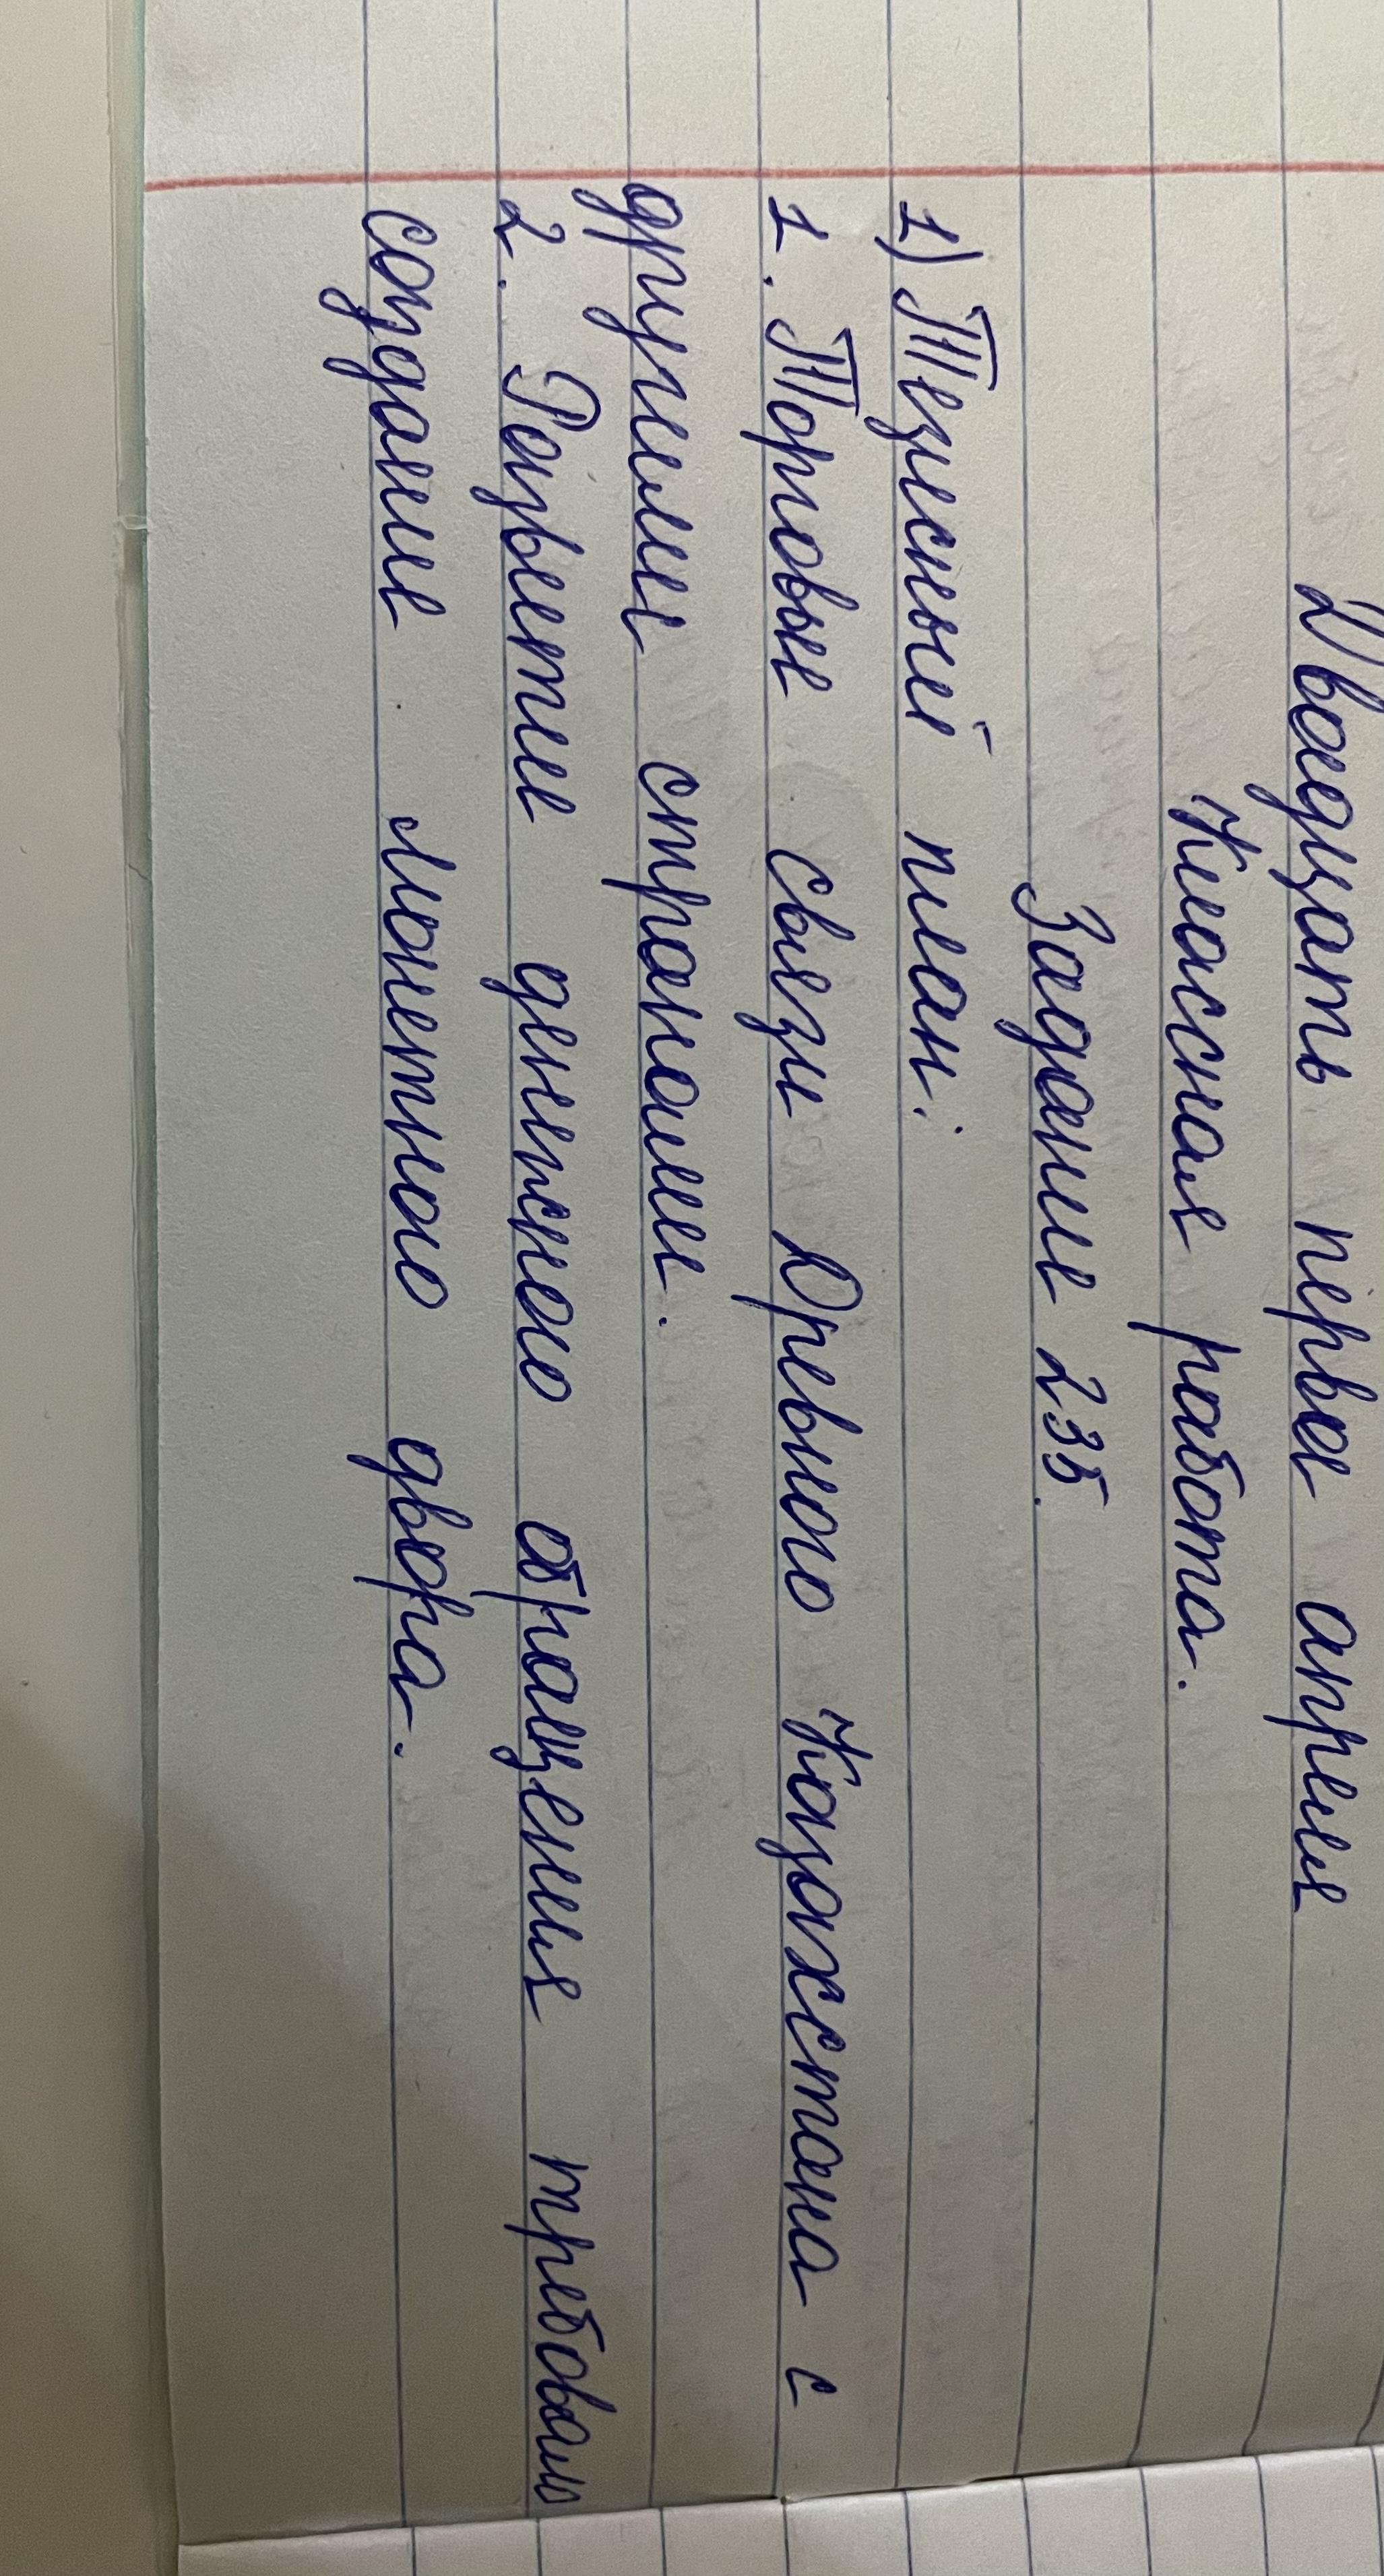 Двадцать первое апреля
Классная работа.
Задание 235.
1) Тезисный план:
1. Торговые связи Древнего Казахстана с
другими странами.
2. Развитие денежного обращения требовало
создание монетного двора.